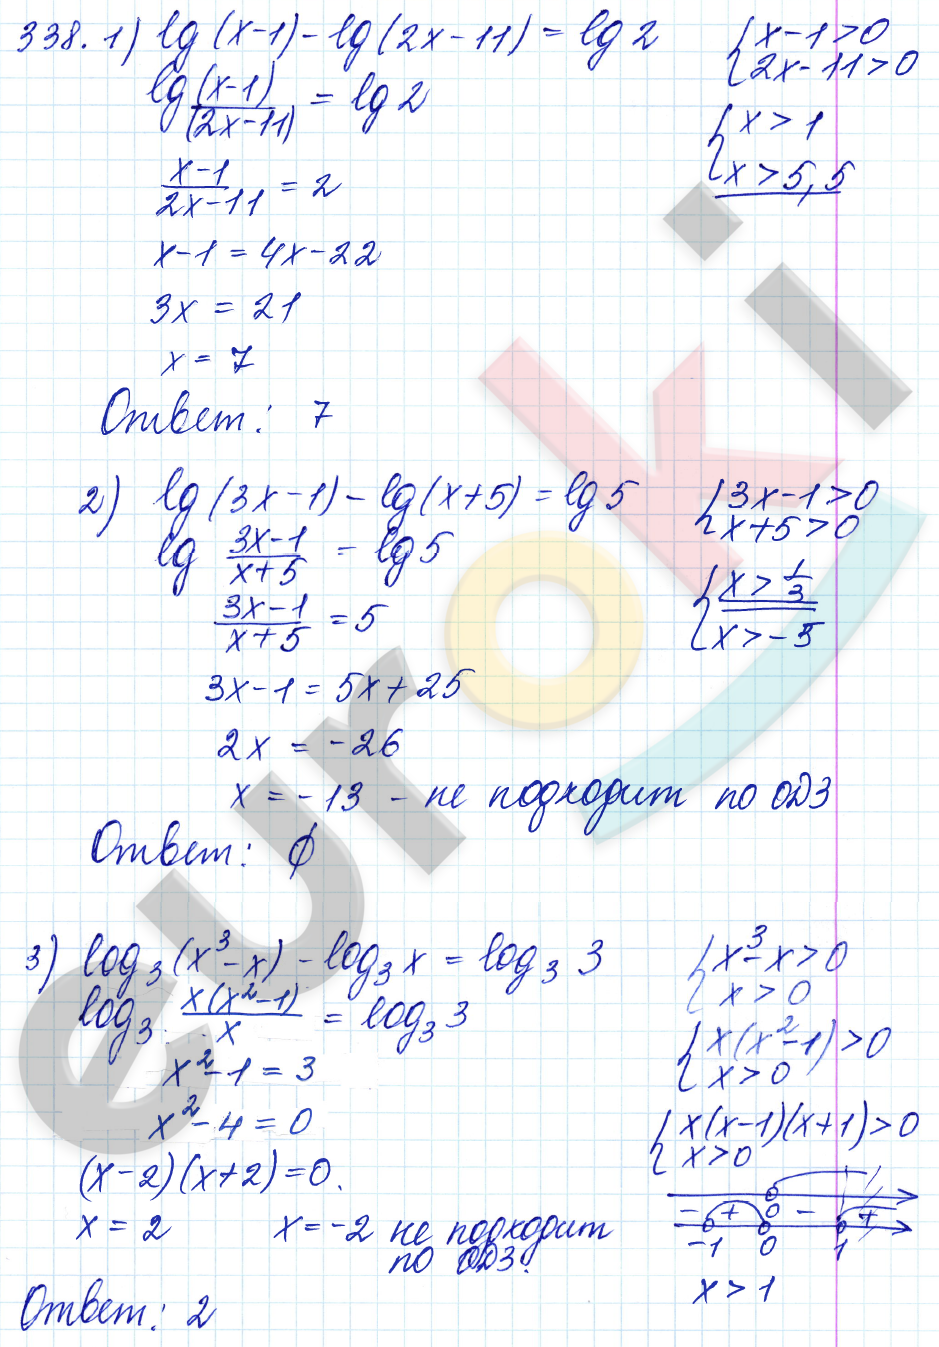 338. 1) lg (x-1) - lg (2x-11) = lg 2
{ x-1>0
{ 2x-11>0
lg (x-1)/(2x-11) = lg 2
{ x>1
{ x>5,5
(x-1)/(2x-11) = 2
x-1 = 4x-22
3x = 21
x = 7
Ответ: 7
2) lg (3x-1) - lg (x+5) = lg 5
{ 3x-1>0
{ x+5>0
lg (3x-1)/(x+5) = lg 5
{ x > 1/3
{ x > -5
(3x-1)/(x+5) = 5
3x-1 = 5x+25
2x = -26
x = -13 - не подходит по ОДЗ
Ответ: ∅
3) log₃ (x³-x) - log₃ x = log₃ 3
{ x³-x>0
{ x>0
log₃ x(x²-1)/x = log₃ 3
{ x(x²-1)>0
{ x>0
x²-1 = 3
x²-4 = 0
{ x(x-1)(x+1)>0
{ x>0
(x-2)(x+2)=0.
0
- + - +
-1 0 1
x = 2 x = -2 не подходит
по ОДЗ.
x > 1
Ответ: 2
euroki